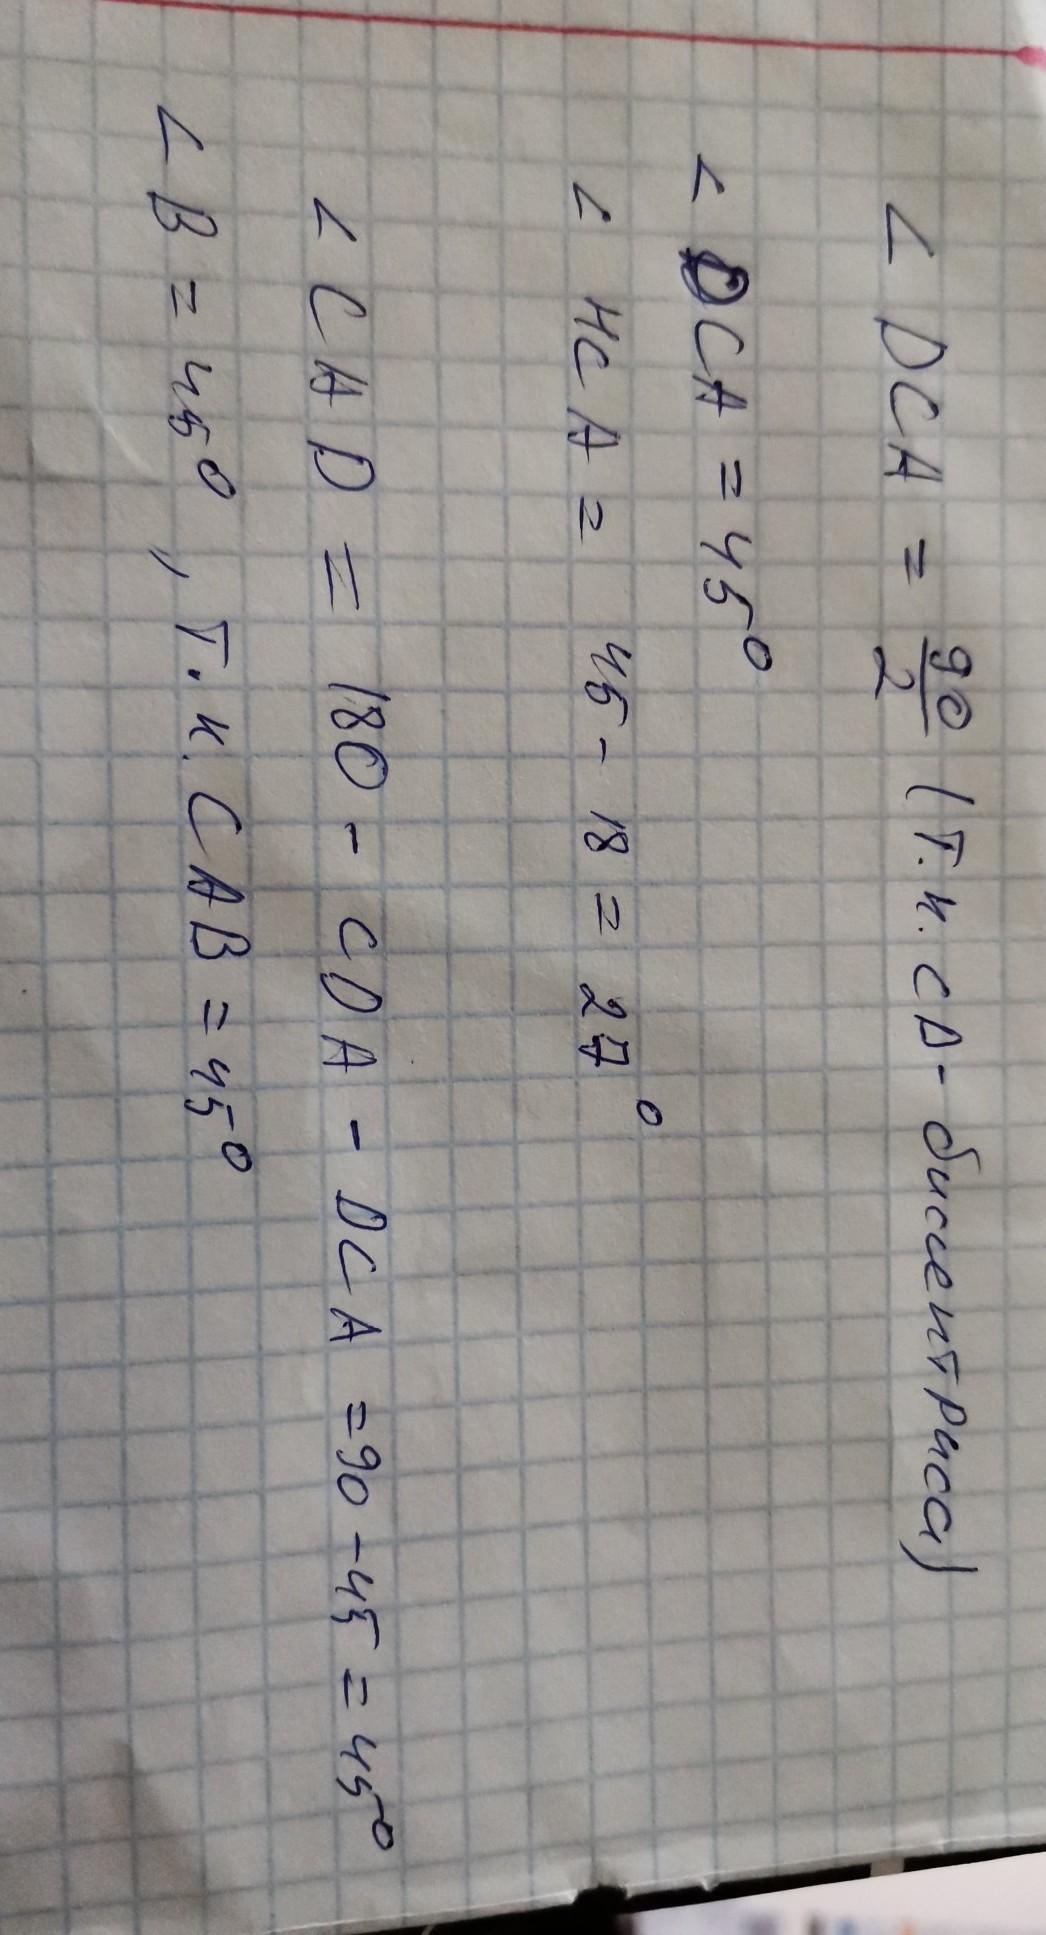 ∠ DCA = 90/2 (т.к. CD - биссектриса)
∠ DCA = 45°
∠ HCA = 45 - 18 = 27°
∠ CAD = 180 - CDA - DCA = 90 - 45 = 45°
∠ B = 45°, т.к. CAB = 45°